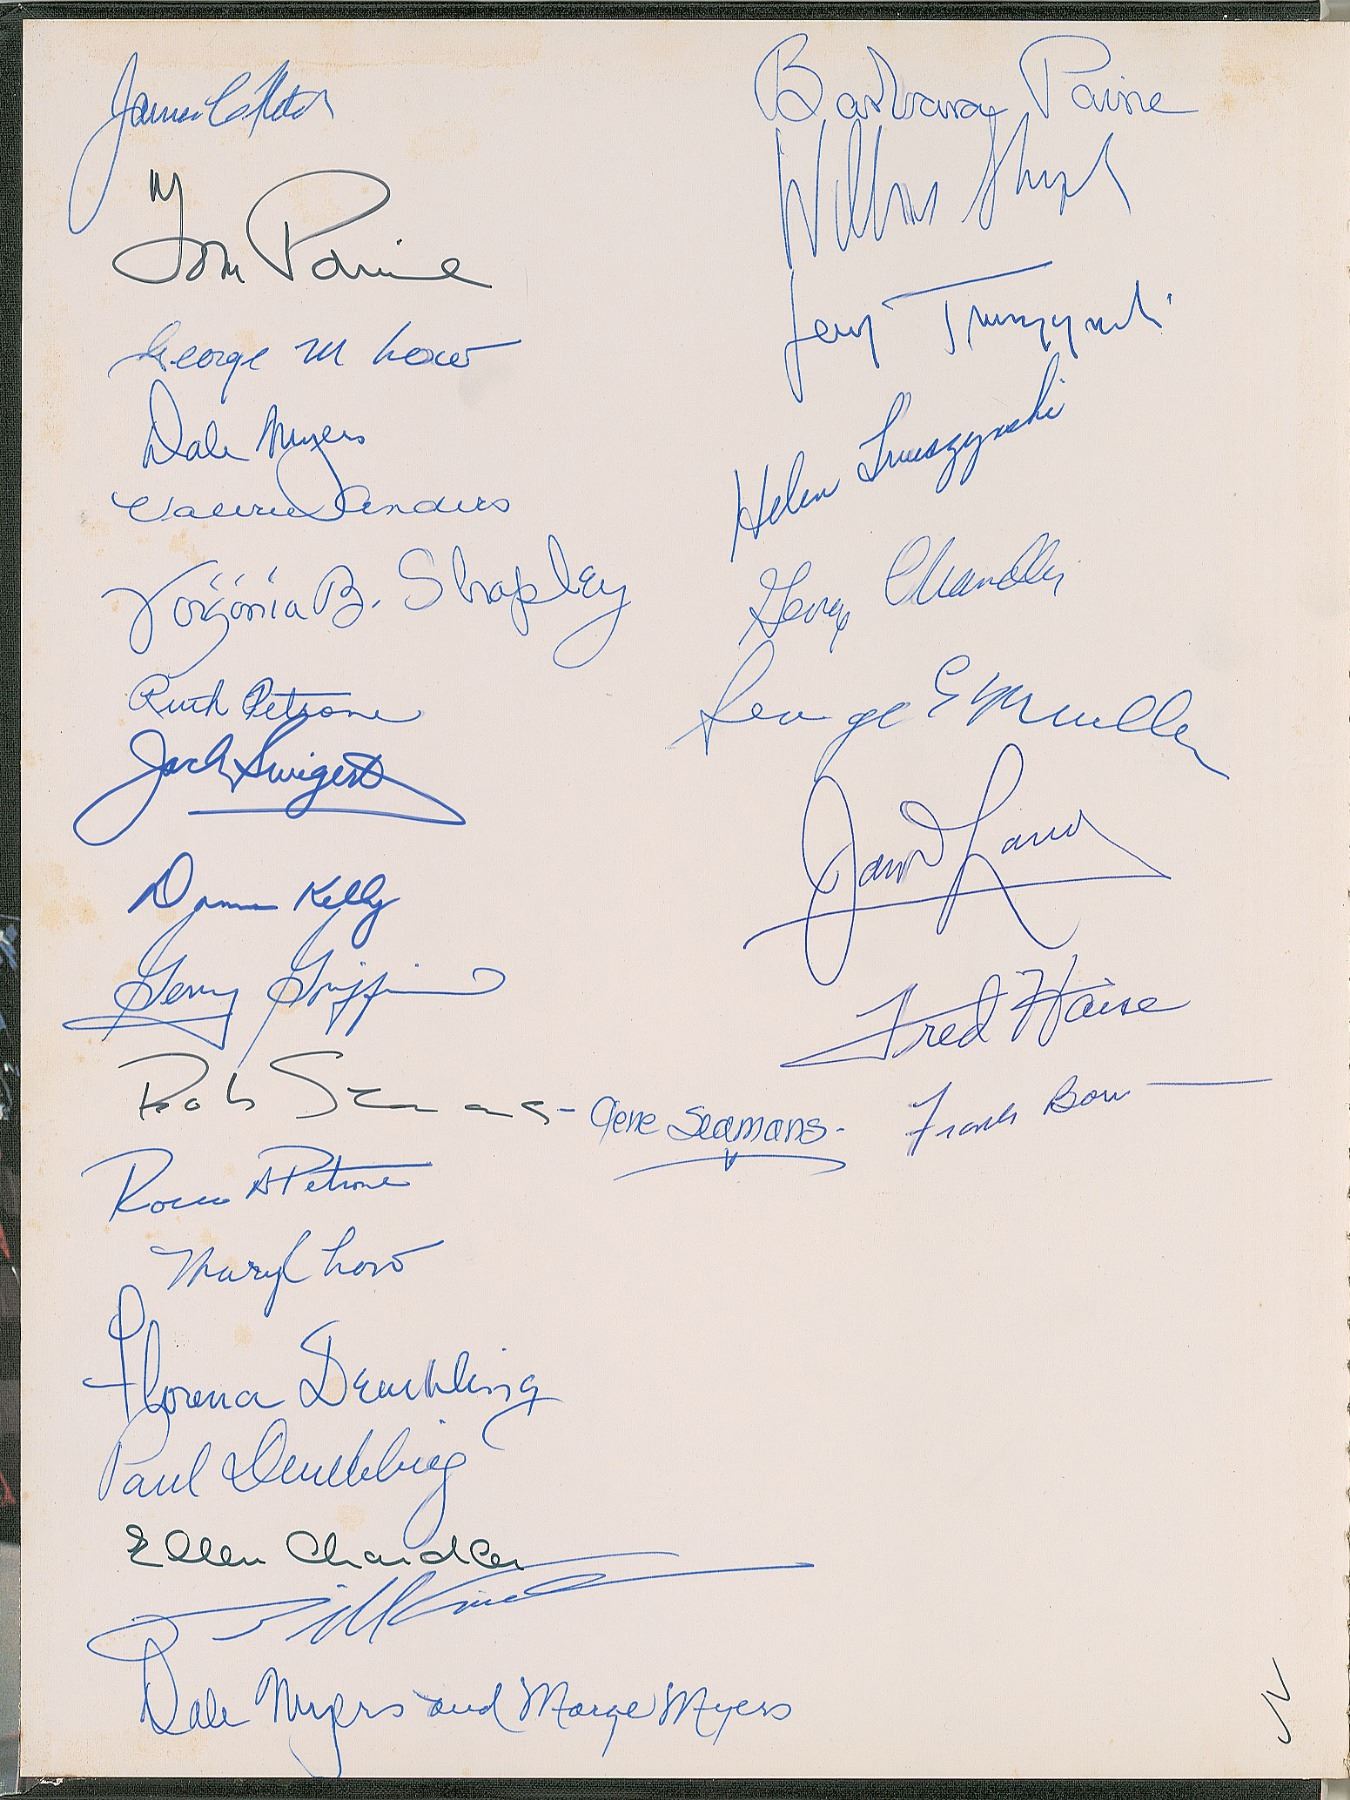 Tom Paine
George M Low
Dale Myers
Valerie Anders
Virginia B. Shapley
Ruth Petrone
Jack Swigert
Kelly
Gerry Griffin
Bob Seamans - Gene Seamans -
Rocco A Petrone
Mary R Low
Florena Deuchling
Paul Deuchling
Ellen Chandler
Dale Myers and Marge Myers
Barbara Paine
Willis Shapley
Jerry Truszynski
Helen Truszynski
George Chandler
George E Mueller
James Lovell
Fred Haise
Frank Borman